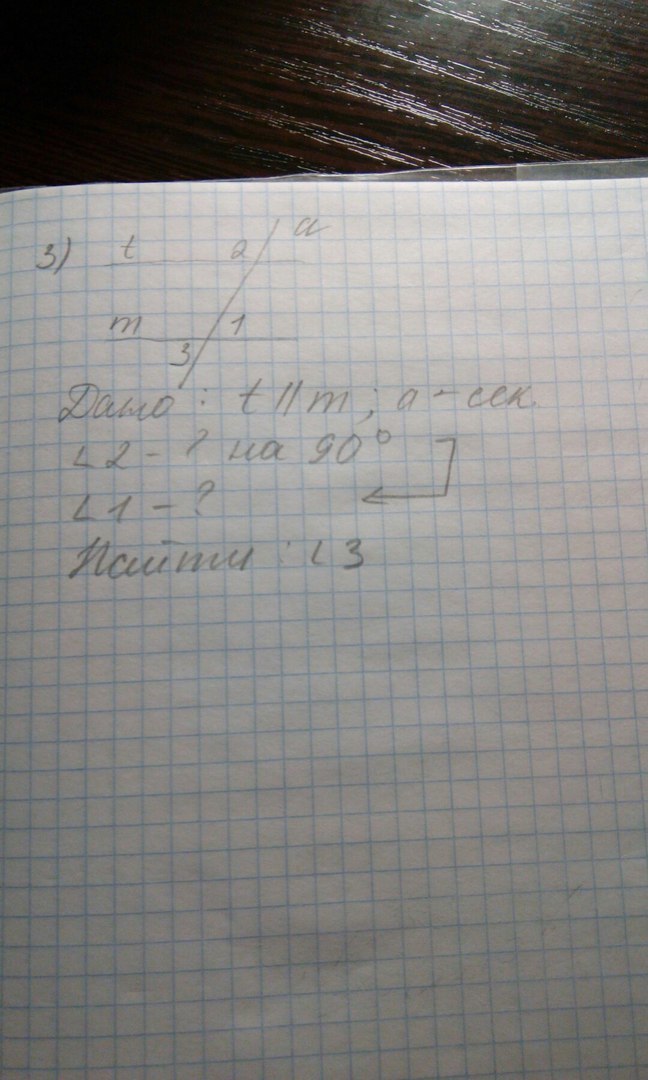 3) t 2 a
m 1
3
Дано: t || m; a - сек.
∠2 - ? на 90°
∠1 - ?
Найти: ∠3